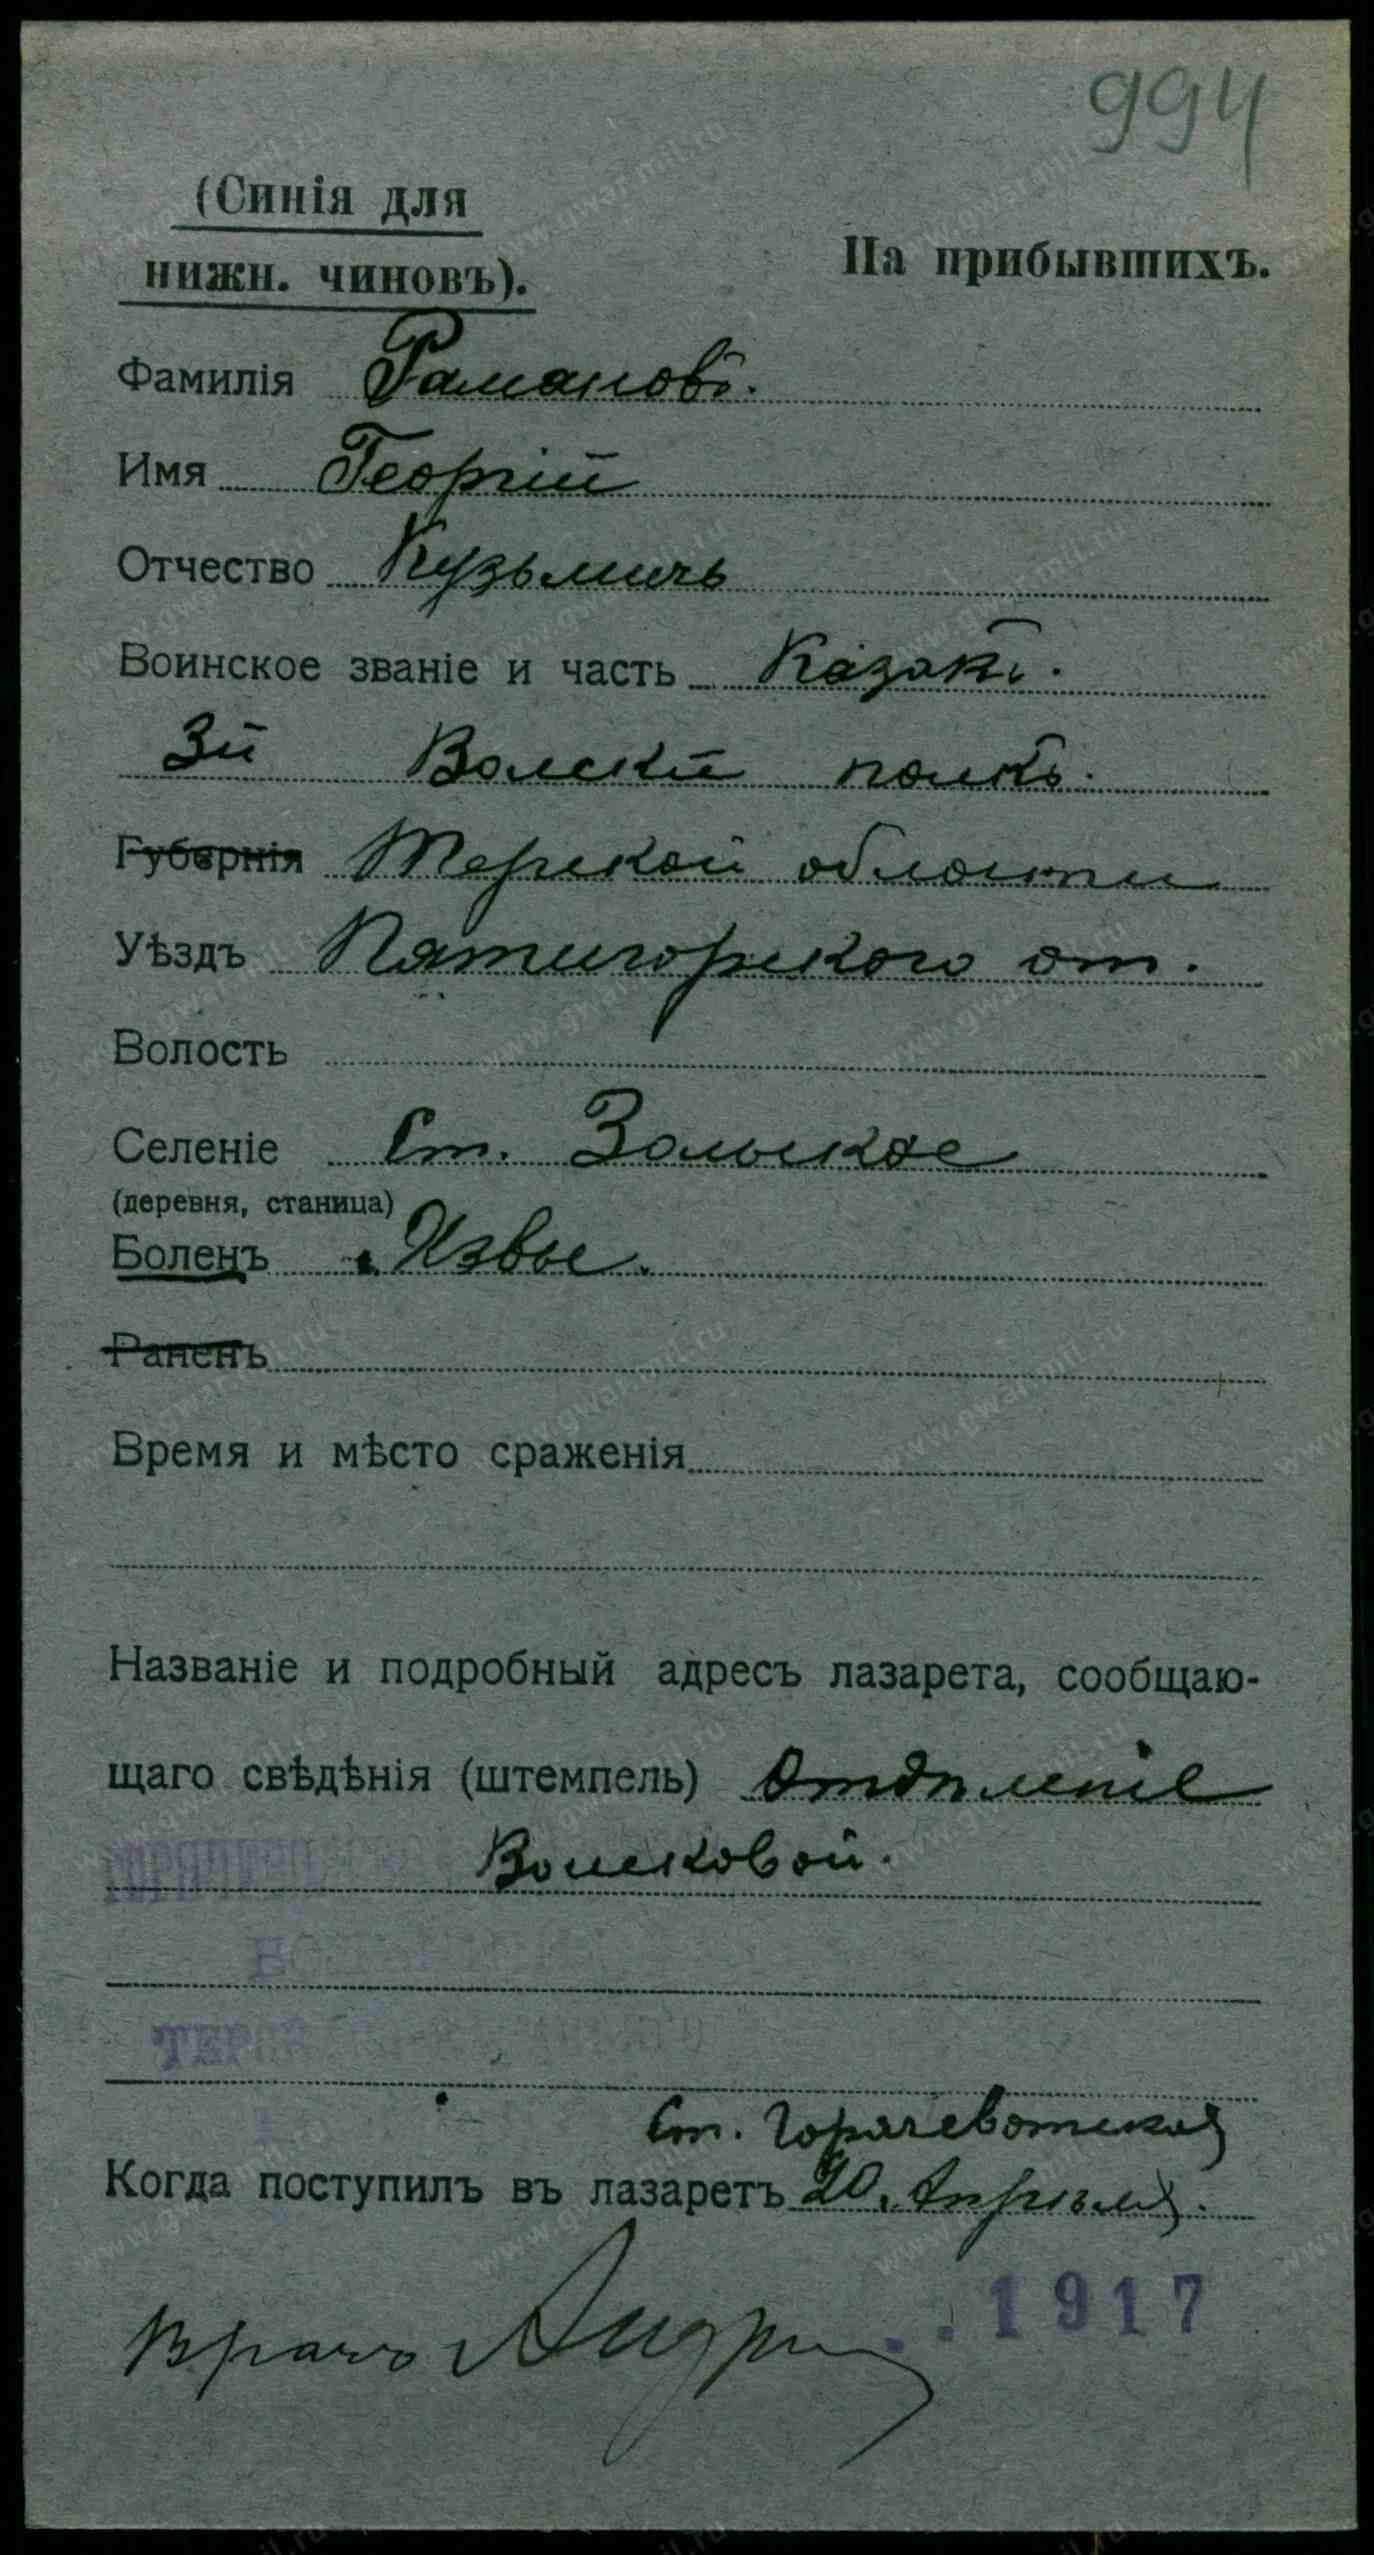 994
(Синія для
нижн. чиновъ).
На прибывшихъ.
Фамилія Рамановъ.
Имя Георгій
Отчество Кузьмичь
Воинское званіе и часть Казакъ.
3й Волскій полкъ.
Губернія Терской области
Уѣздъ Пятигорского от.
Волость
Селеніе Ст. Зольское
(деревня, станица)
Боленъ Язвы.
Раненъ
Время и мѣсто сраженія
Названіе и подробный адресъ лазарета, сообщаю-
щаго свѣдѣнія (штемпель) Отдѣленіе
Волсковой.
Ст. Горячевотская
Когда поступилъ въ лазаретъ 20 Апрѣля.
1917
Врачъ